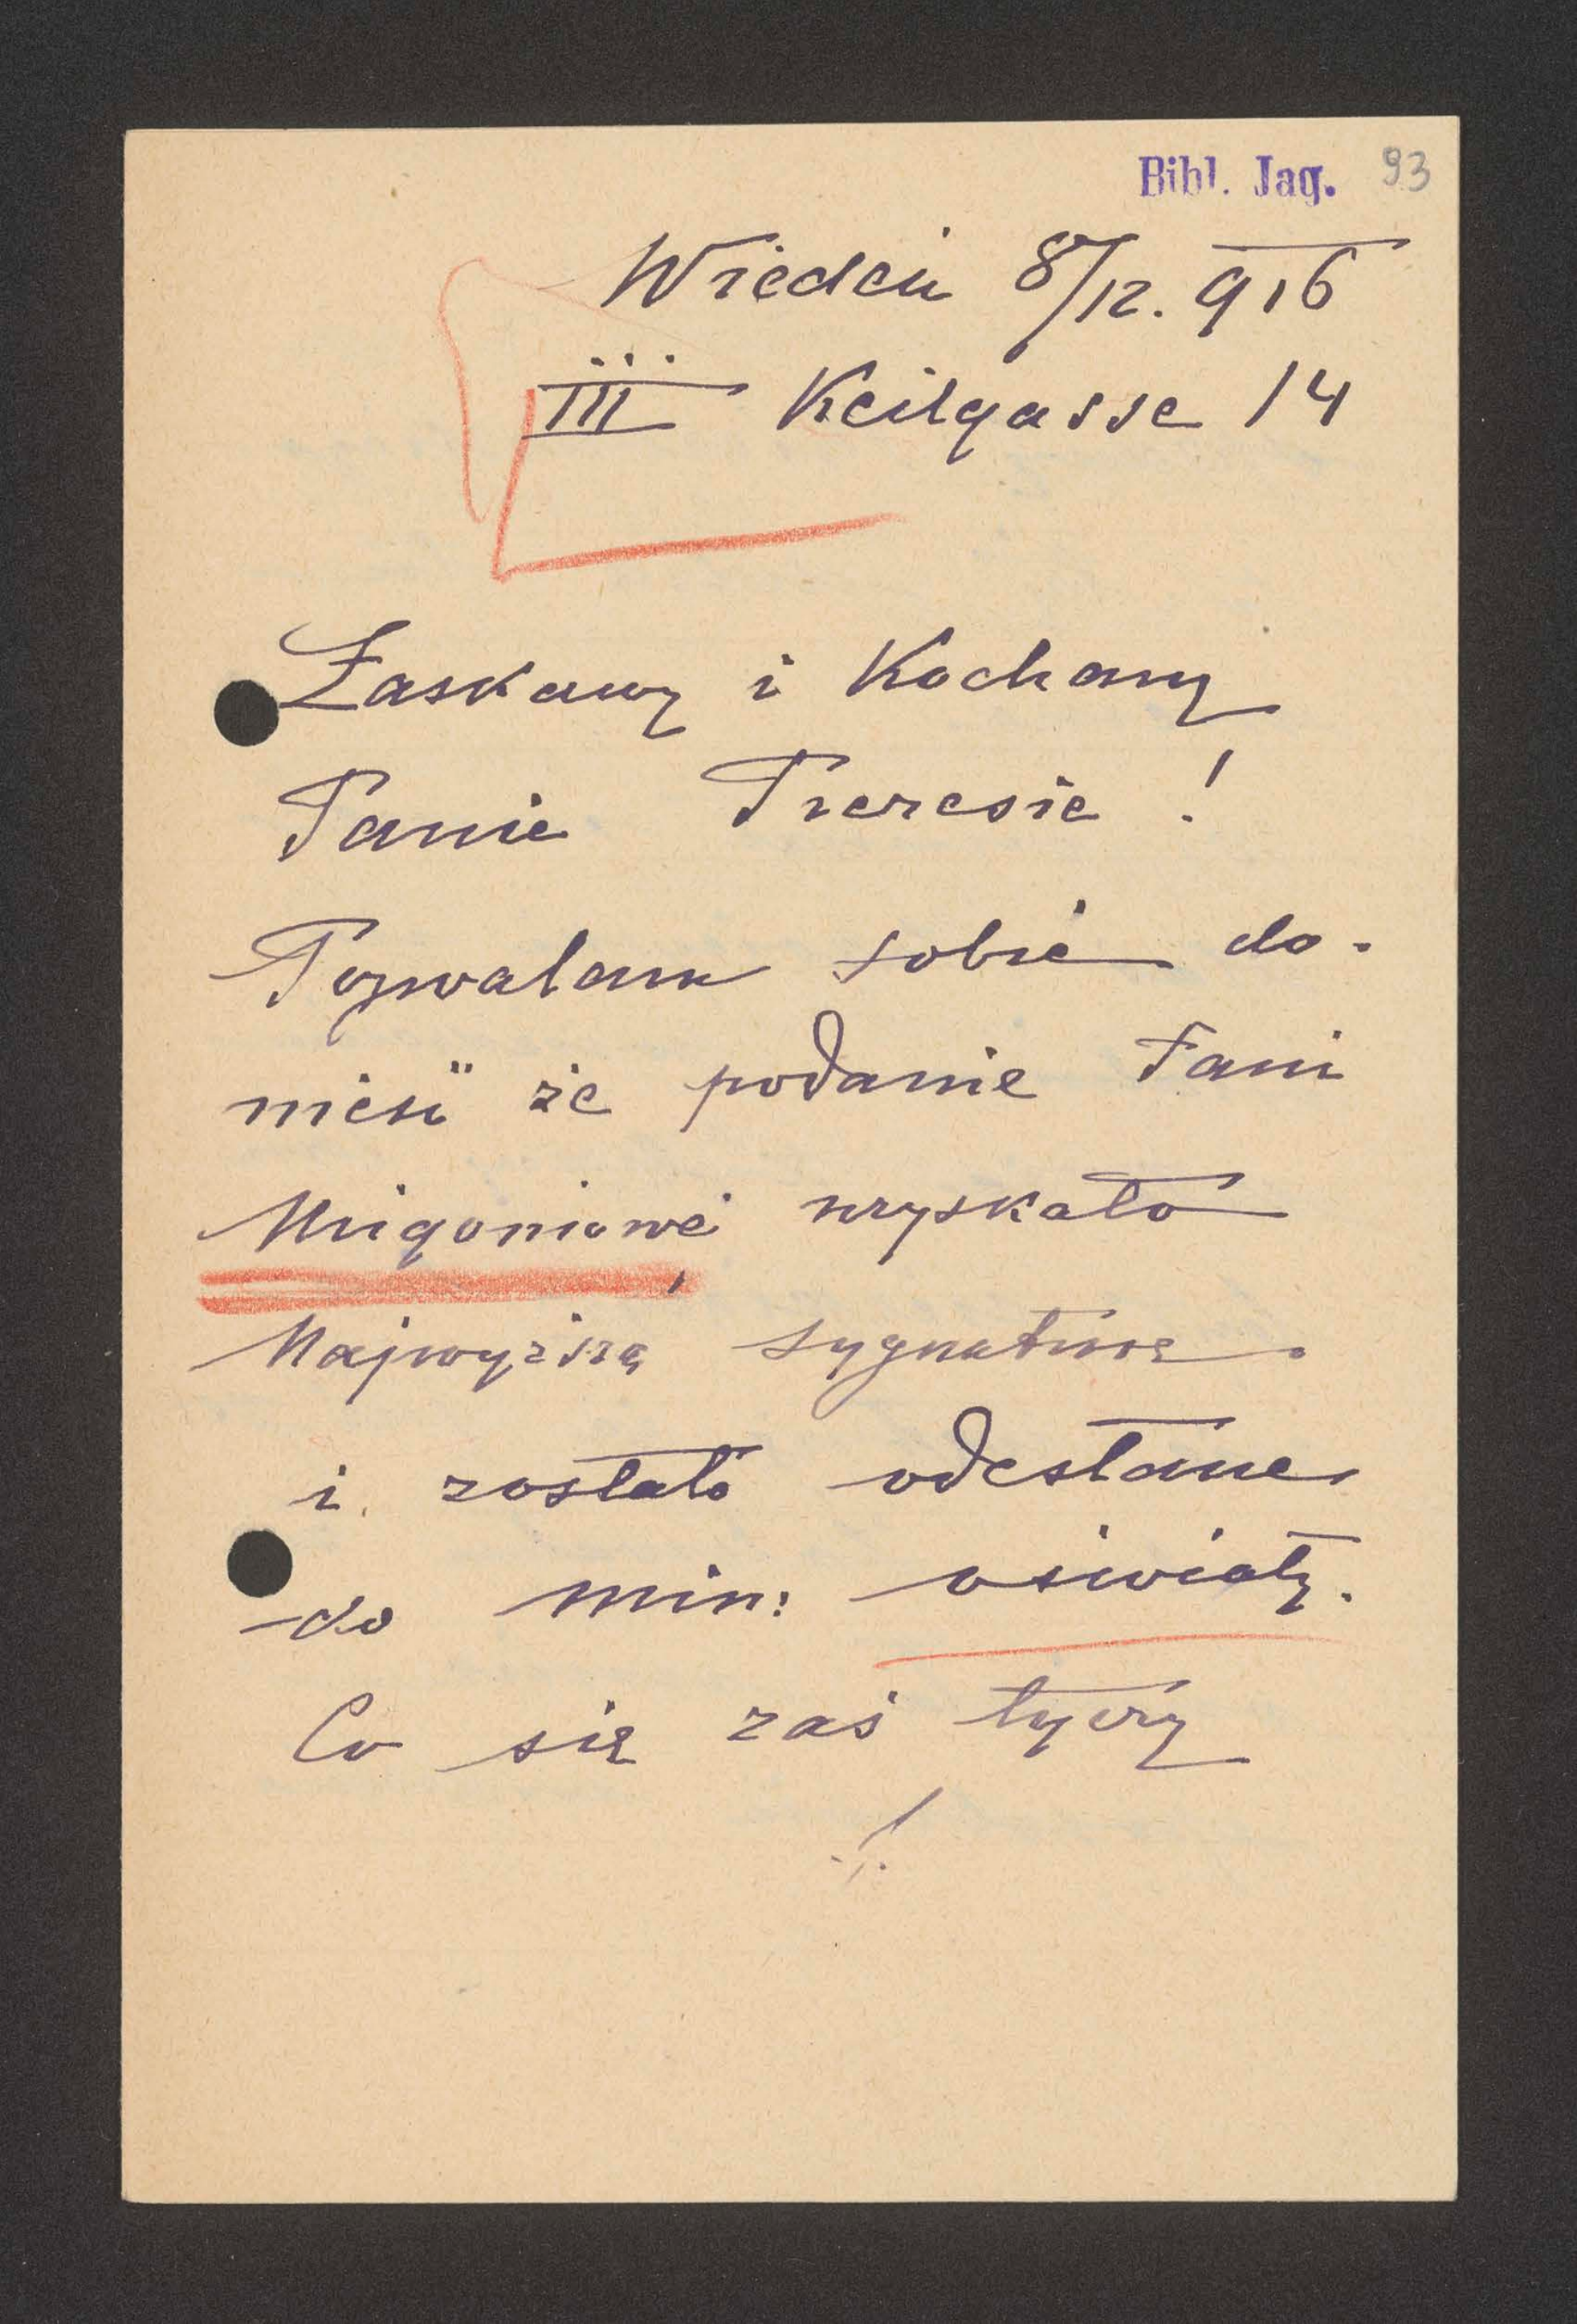 Bibl. Jag. 93
Wiedeń 8/12. 916
III Keilgasse 14
Łaskawy i Kochany
Panie Prezesie!
Pozwalam sobie do-
nieść że podanie Pani
Migoniowej uzyskało
Najwyższą sygnaturę
i zostało odesłane
do min: oświaty.
Co się zaś tyczy
./.